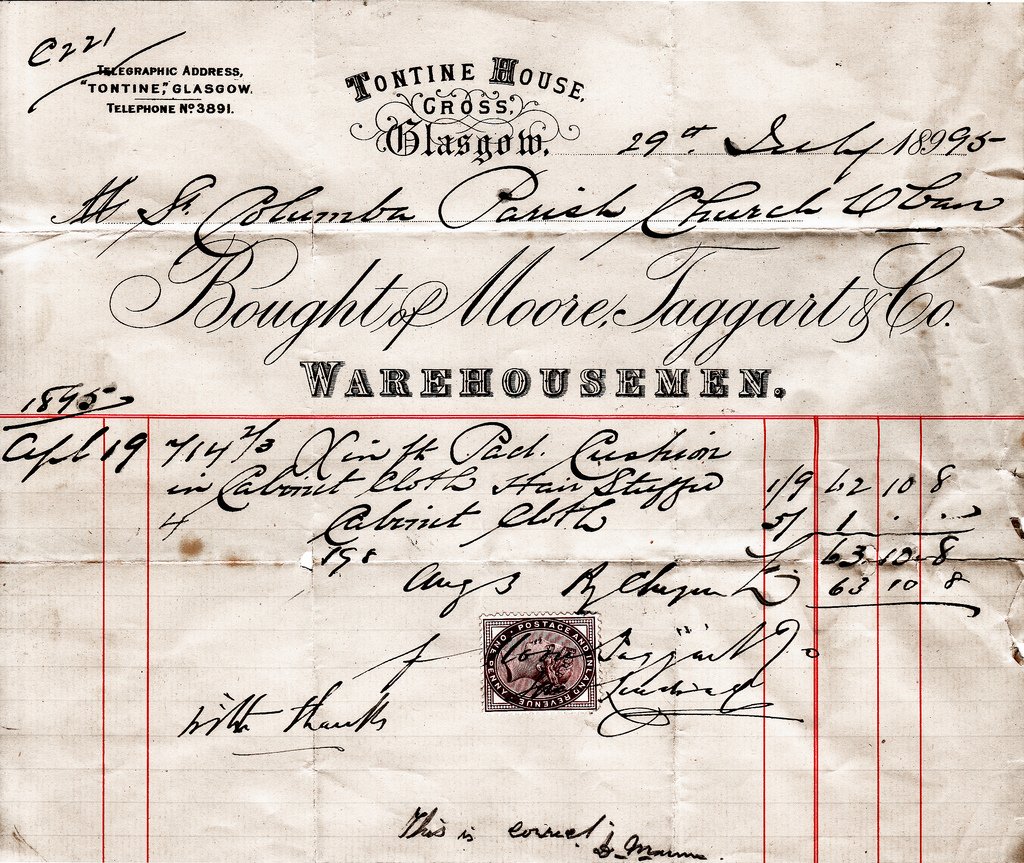 C221
TELEGRAPHIC ADDRESS,
"TONTINE," GLASGOW.
TELEPHONE Nº 3891.
TONTINE HOUSE,
CROSS,
Glasgow. 29th July 1895
M St. Columba Parish Church Oban
Bought of Moore, Taggart & Co.
WAREHOUSEMEN.
1895
Apl 19 714 2/3 Pad. Cushion
in Cabinet Cloth Hair Stuffed 1/9 62 10 8
4 Cabinet Cloth 5/ 1 . .
£ 63. 10. 8
Aug 3 By Cheque 63 10 8
POSTAGE AND INLAND REVENUE · ONE PENNY
f Moore Taggart Co
with thanks
This is correct